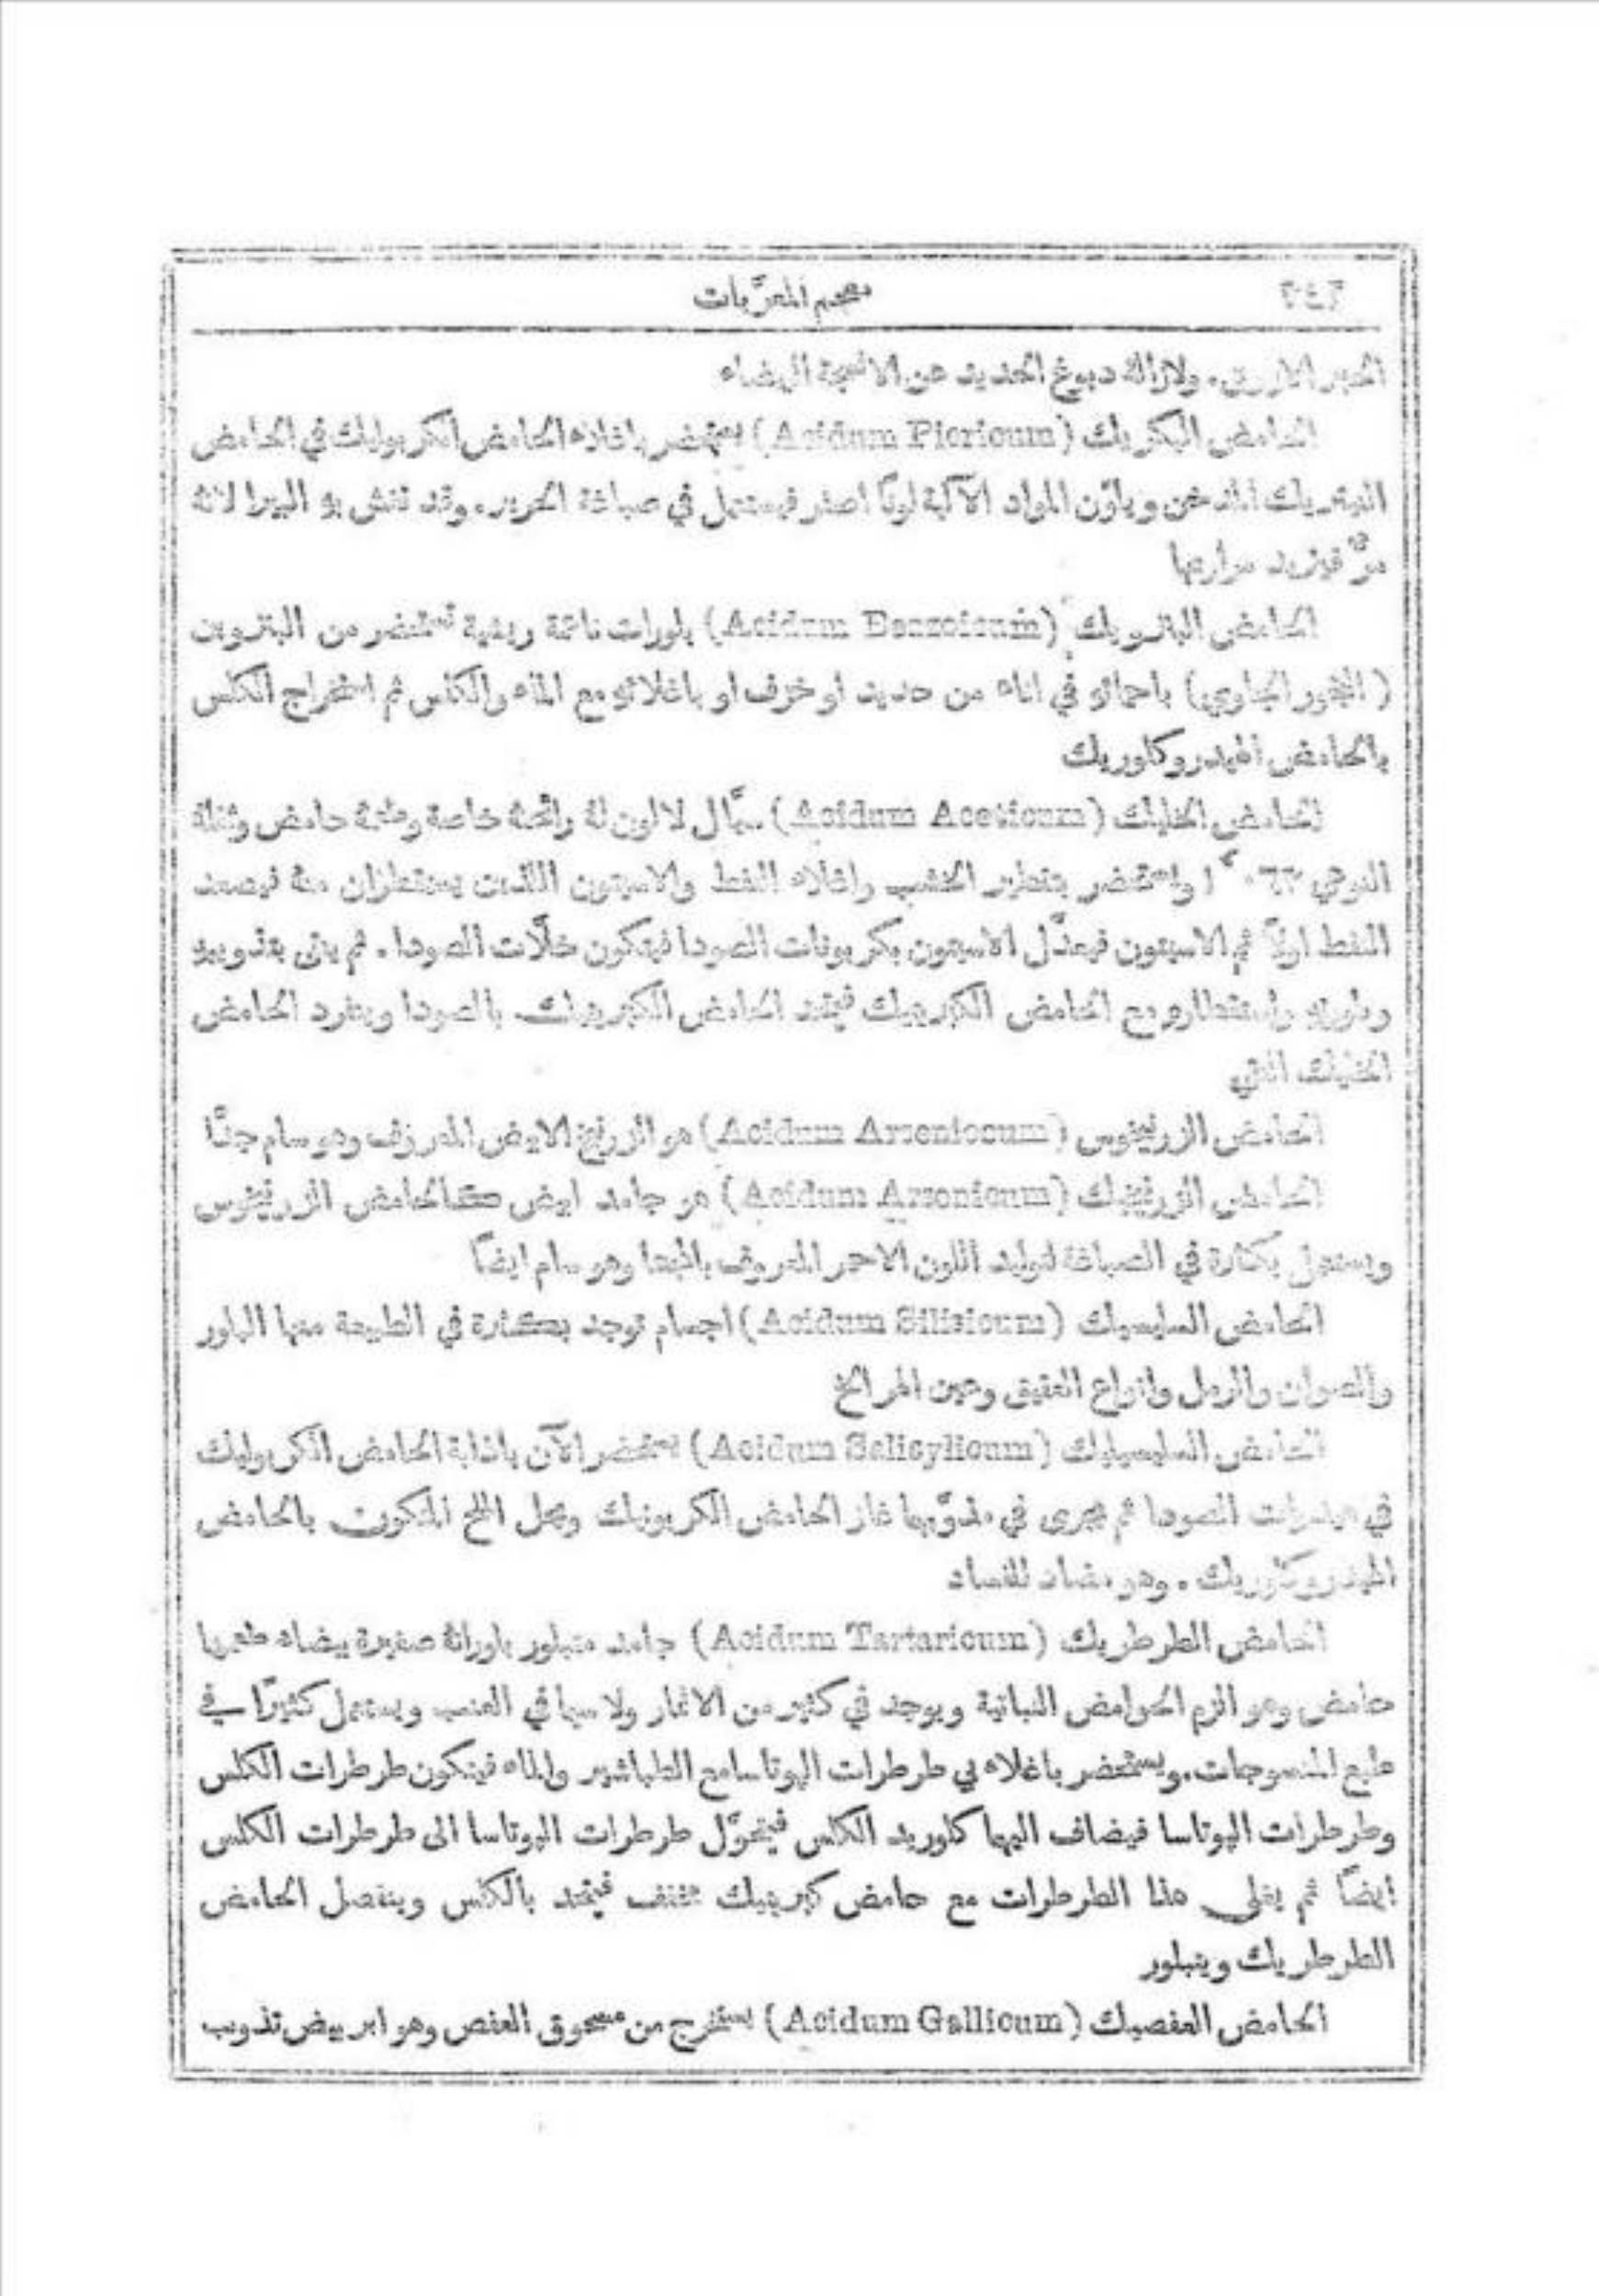 معجم المعرَّبات
الحبر الازرق. ولازالة دبوغ الحديد عن الانسجة البيضاء
الحامض البكريك (Acidum Picricum) يستحضر باغلاء الحامض الكربوليك في الحامض
النيتريك المدخن ويلوّن المواد الآلية لونًا اصفر فيستعمل في صباغة الحرير. وقد تغش بهِ البيرا لانهُ
مرٌّ فيزيد مرارتها
الحامض البنزويك (Acidum Benzoicum) بلورات ناعمة ريشية تستحضر من البنزوين
(البخور الجاوي) باحمائهِ في اناء من حديد او خزف او باغلائهِ مع الماء والكلس ثم استخراج الكلس
بالحامض الهيدروكلوريك
الحامض الخليك (Acidum Aceticum) سيَّال لا لون لهُ رائحتهُ خاصة وطعمهُ حامض وثقلهُ
النوعي ويستحضر بتقطير الخشب واغلاء النفط والاسيتون اللذين يستقطران منهُ فيصعد
النفط اولًا ثم الاسيتون فيعدَّل الاسيتون بكربونات الصودا فيتكون خلَّات الصودا. ثم ينقى بتذويبهِ
وبلورتهِ واستقطارهِ مع الحامض الكبريتيك فيتحد الحامض الكبريتيك بالصودا وينفرد الحامض
الخليك النقي
الحامض الزرنيخوس (Acidum Arseniosum) هو الزرنيخ الابيض المعروف وهو سام جدًّا
الحامض الزرنيخيك (Acidum Arsenicum) هو جامد ابيض كالحامض الزرنيخوس
ويستعمل بكثرة في الصباغة لتوليد اللون الاحمر المعروف بالمجنتا وهو سام ايضًا
الحامض السليسيك (Acidum Silisicum) اجسام توجد بكثرة في الطبيعة منها البلور
والصوان والرمل وانواع العقيق وعين الهر الخ
الحامض السليسيليك (Acidum Salicylicum) يستحضر الآن باذابة الحامض الكربوليك
في هيدرات الصودا ثم يجرى في مذوَّبهما غاز الحامض الكربونيك ويحل الملح المتكون بالحامض
الهيدروكلوريك. وهو مضاد للفساد
الحامض الطرطريك (Acidum Tartaricum) جامد متبلور بلوراتهُ صغيرة بيضاء طعمها
حامض وهو الزم الحوامض النباتية ويوجد في كثير من الاثمار ولا سيما في العنب ويستعمل كثيرًا في
طبع المنسوجات. ويستحضر باغلاء بي طرطرات البوتاسا مع الطباشير والماء فيتكون طرطرات الكلس
وطرطرات البوتاسا فيضاف اليهما كلوريد الكلس فيتحوَّل طرطرات البوتاسا الى طرطرات الكلس
ايضًا ثم يغلى هذا الطرطرات مع حامض كبريتيك مخفف فيتحد بالكلس وينفصل الحامض
الطرطريك ويتبلور
الحامض العفصيك (Acidum Gallicum) يستخرج من مسحوق العفص وهو ابر بيض تذوب